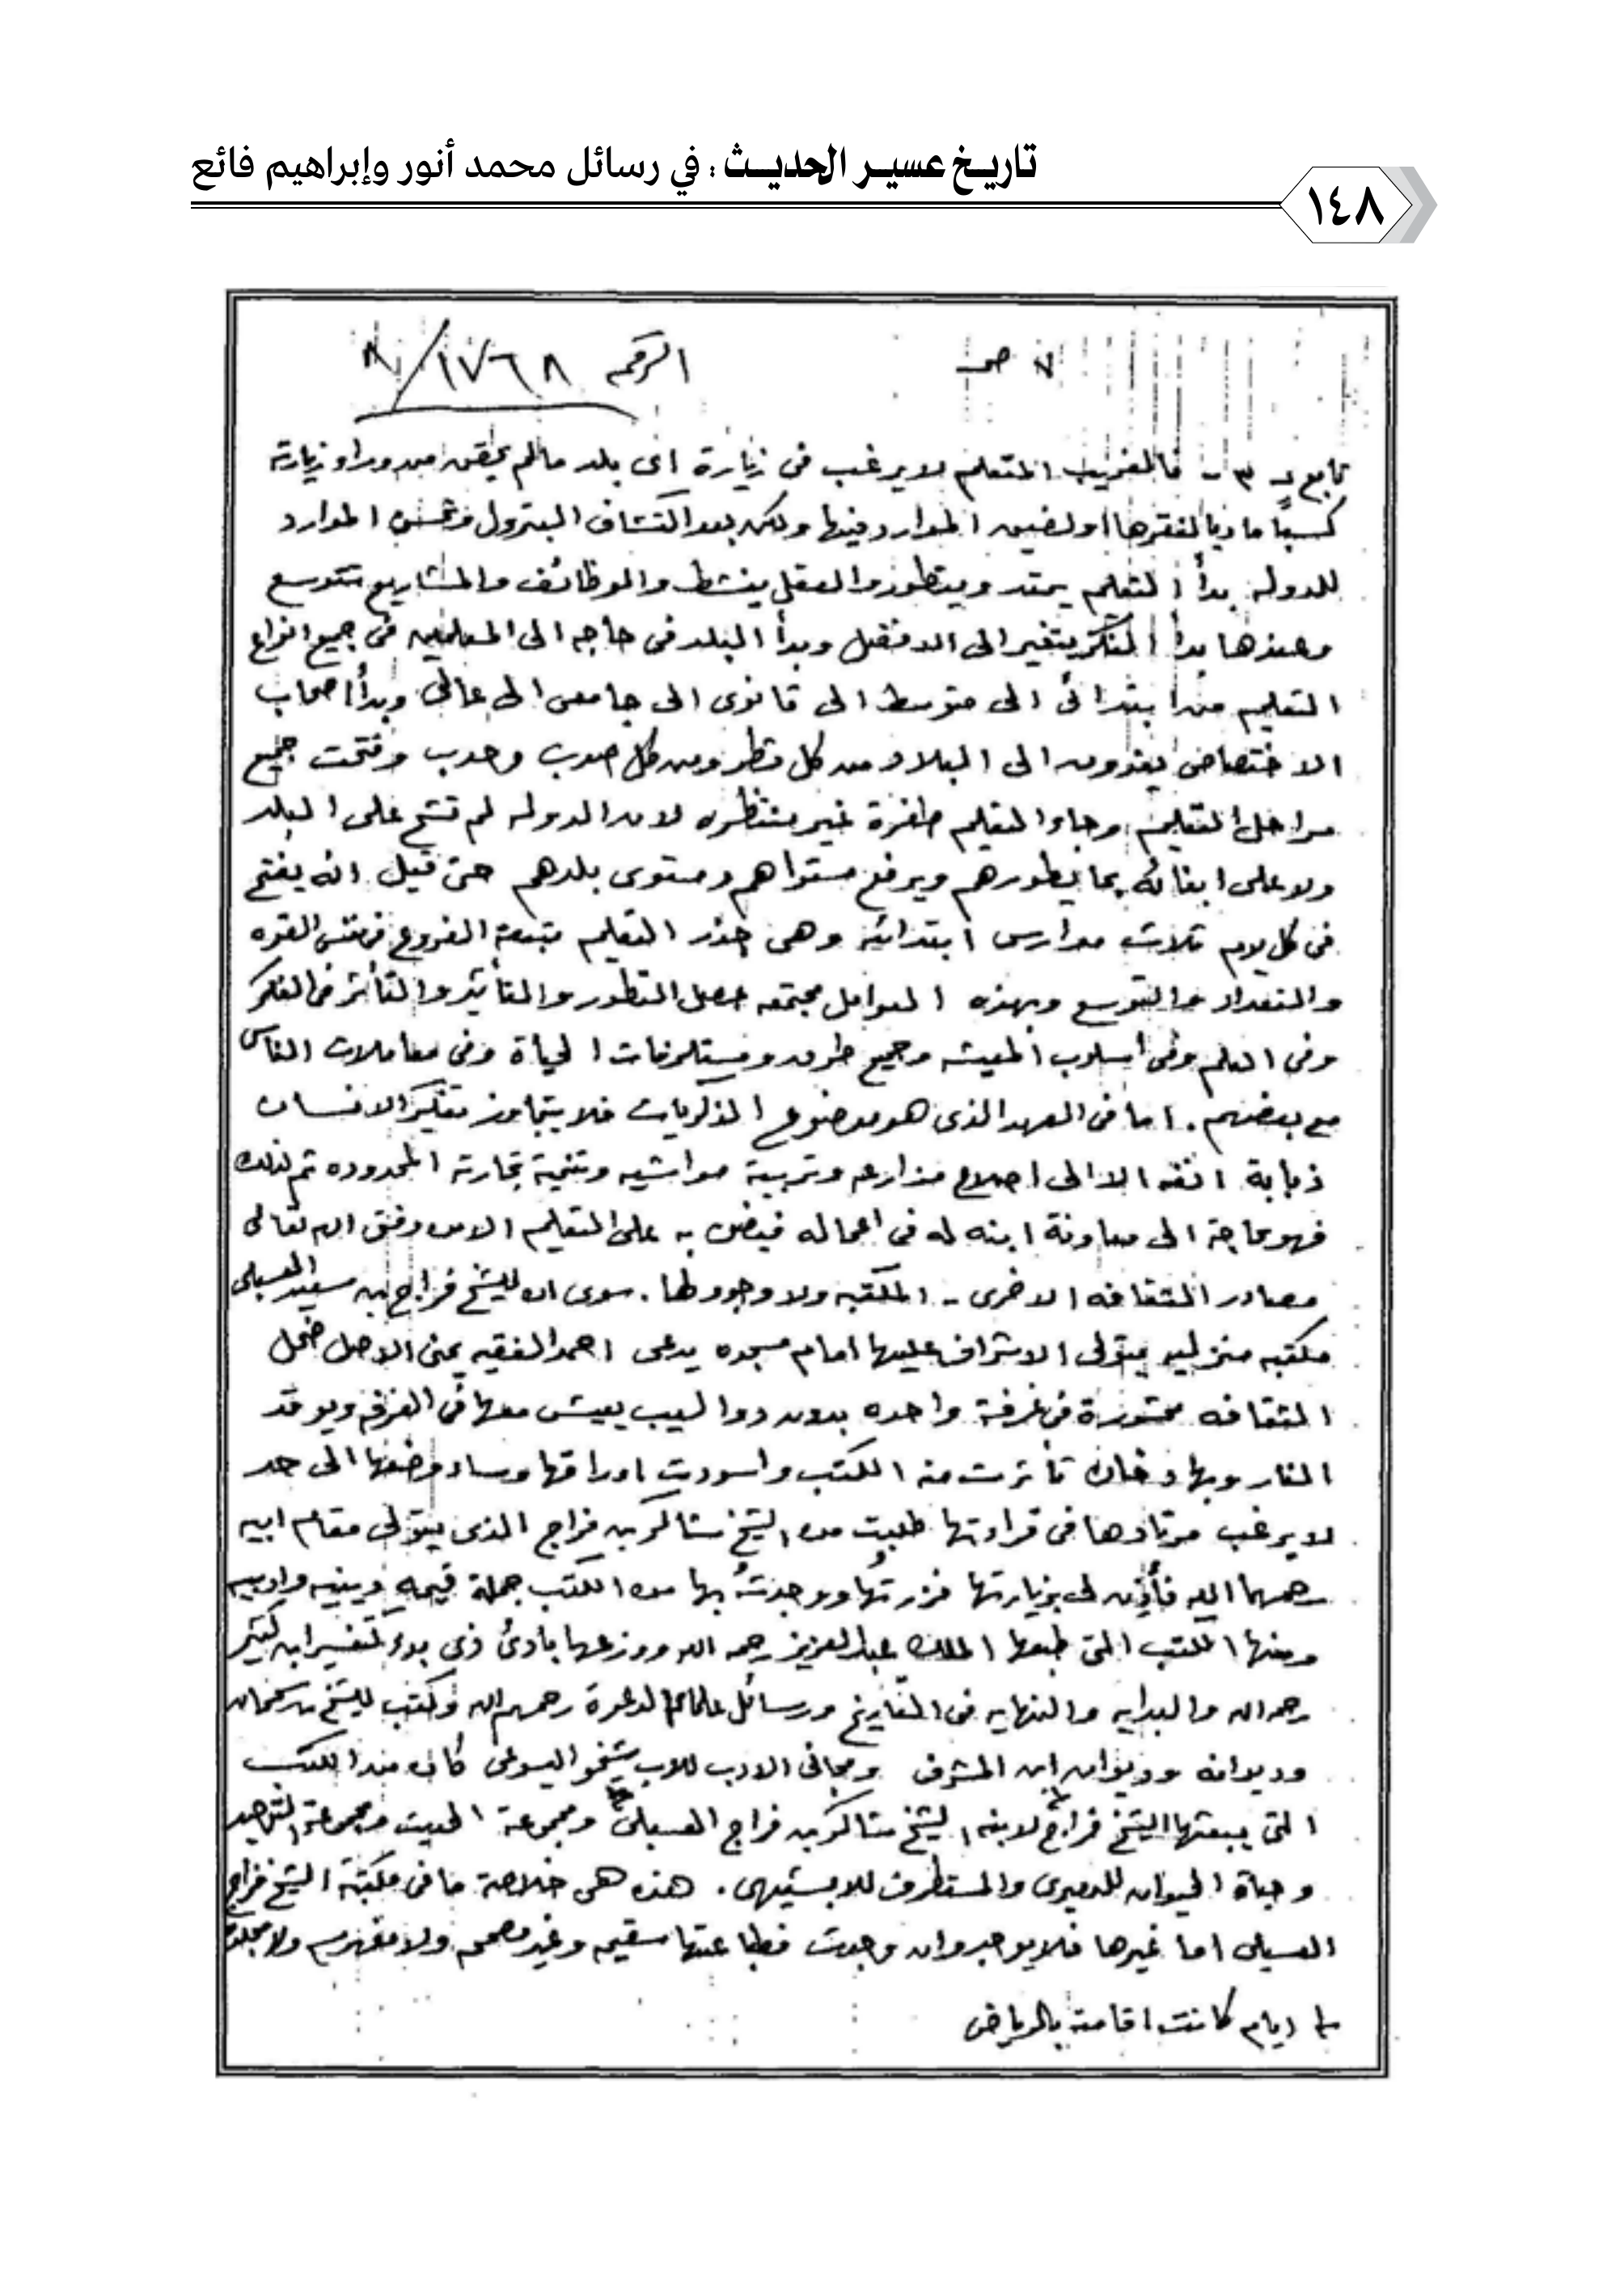 تاريخ عسير الحديث : في رسائل محمد أنور وإبراهيم فائع
١٤٨
٧ صـ
الرقم ١٧٦٨/٨
تابع ـ ٣ ـ فالغريب المتعلم لا يرغب فى زيارة اى بلد مالم يحقق من وراء زيارته
كسبًا ماديا لفقرها او لضيق الموارد فيها ولكن بعد اكتشاف البترول وتحسن الموارد
للدوله بدأ التعلم يمتد ويتطور والعقل ينشط والوظائف والمشاريع تتوسع
وعندها بدأ الفكر يتغير الى الافضل وبدأ البلد فى حاجه الى المعلمين فى جميع انواع
التعليم من ابتدائى الى متوسط الى ثانوى الى جامعى الى عالى وبدأ اصحاب
الاختصاص يفدون الى البلاد من كل قطر ومن كل صوب وحدب وفتحت جميع
مراحل التعليم وجاء التعليم طفرة غير منتظره لان الدوله لم تشح على البلد
ولا على ابنائه بما يطورهم ويرفع مستواهم ومستوى بلدهم حتى قيل انه يفتح
فى كل يوم ثلاث مدارس ابتدائيه وهى جذر التعليم بقية الفروع فى نفس القوه
والتعداد والتوسع وبهذه العوامل مجتمعه حصل التطور والتأثير والتأثر فى الفكر
وفى العلم وفى اسلوب المعيشه وجميع طرق ومستلزمات الحياة وفى معاملات الناس
مع بعضهم . اما فى العهد الذى هو موضوع الذكريات فلا يتجاوز تفكير الانسان
ذبابة انفه الا الى اصلاح مزارعه وتربية مواشيه وتنمية تجارته المحدوده ثم لذلك
فهو بحاجة الى معاونة ابنه له فى اعماله فيضن به على التعليم الا من وفق الله تعالى
مصادر الثقافه الاخرى ـ المكتبه ولا وجود لها . سوى ان للشيخ فراج بن سعيد العسبلى
مكتبه منزليه يتولى الاشراف عليها امام مسجده يدعى احمد الفقيه يمنى الاصل ضحل
الثقافه محشورة فى غرفة واحده بدون دواليب يعيش معها فى الغرفه ويوقد
النار وبها دخان تأثرت منه الكتب واسودت اوراقها وساء وضعها الى حد
لا يرغب مرتادها فى قراءتها طلبت من الشيخ شاكر بن فراج الذى يتولى مقام ابيه
رحمهما الله فأذن لى بزيارتها فزرتُها ووجدتُ بها من الكتب جملة قيمه دينيه وادبيه
ومنها الكتب التى طبعها الملك عبدالعزيز رحمه الله ووزعها بادئ ذى بدء كتفسير ابن كثير
رحمه الله والبدايه والنهايه فى التاريخ ورسائل علماء الدعوة رحمهم الله وكتب للشيخ بن سحمان
وديوانه وديوان ابن المشرف ومجانى الادب للاب شيخو اليسوعى كان من الكتب
التى يبعثها الشيخ فراج لابنه الشيخ شاكر بن فراج العسبلى ومجموعة الحديث ومجموعة التوحيد
وحياة الحيوان للدميرى والمستطرف للابشيهى . هذه هى خلاصة ما فى مكتبة الشيخ فراج
العسبلى اما غيرها فلا يوجد وان وجدت فطباعتها سقيمه وغير مصححه ولا مفهرسه ولا مجلده
ايام كانت اقامته بالرياض